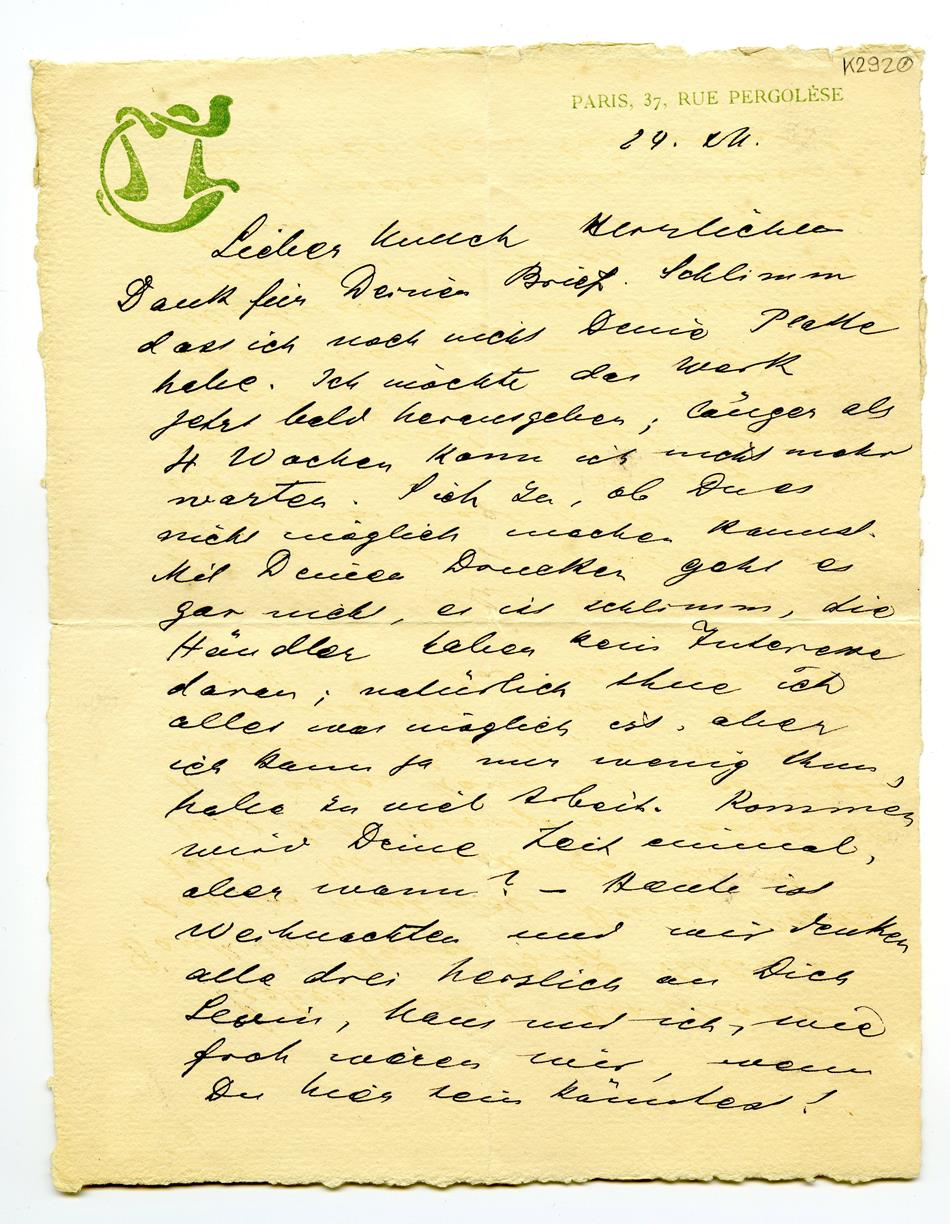 K292①
PARIS, 37, RUE PERGOLÈSE
24. XII.
Lieber Munch Herzlichen
Dank für Deinen Brief. Schlimm
dass ich noch nicht Deine Platte
habe. Ich möchte das Werk
jetzt bald herausgeben; länger als
4 Wochen kann ich nicht mehr
warten. Sieh zu, ob Du es
nicht möglich machen kannst.
Mit Deinen Drucken geht es
gar nicht, es ist schlimm, die
Händler haben kein Interesse
daran; natürlich thue ich
alles was möglich ist, aber
ich kann ja nur wenig thun,
habe zu viel Arbeit. Kommen
wird Deine Zeit einmal,
aber wann? — Heute ist
Weihnachten und wir denken
alle drei herzlich an Dich
Levin, Hans und ich, wie
froh wären wir, wenn
Du hier sein könntest!